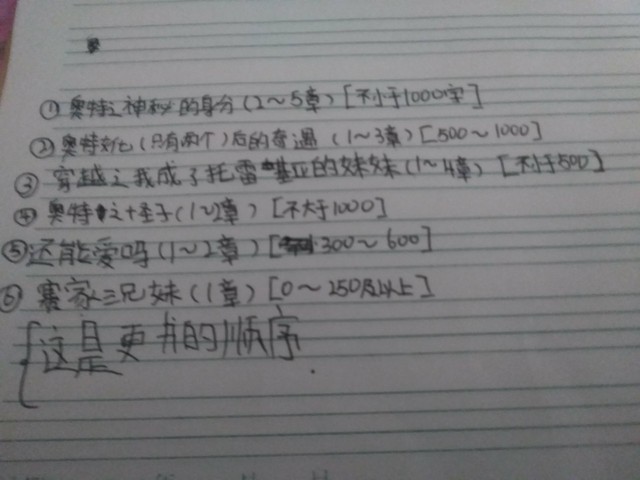 ①奥特之神秘的身分(2～5章)[不小于1000字]
②奥特文化(只有两个)后的奇遇(1～3章)[500～1000]
③穿越之我成了托雷基亚的妹妹(1～4章)[不小于500]
④奥特之十圣子(1～2章)[不大于1000]
⑤还能爱吗(1～2章)[300～600]
⑥赛家三兄妹(1章)[0～250及以上]
{这是更书的顺序.